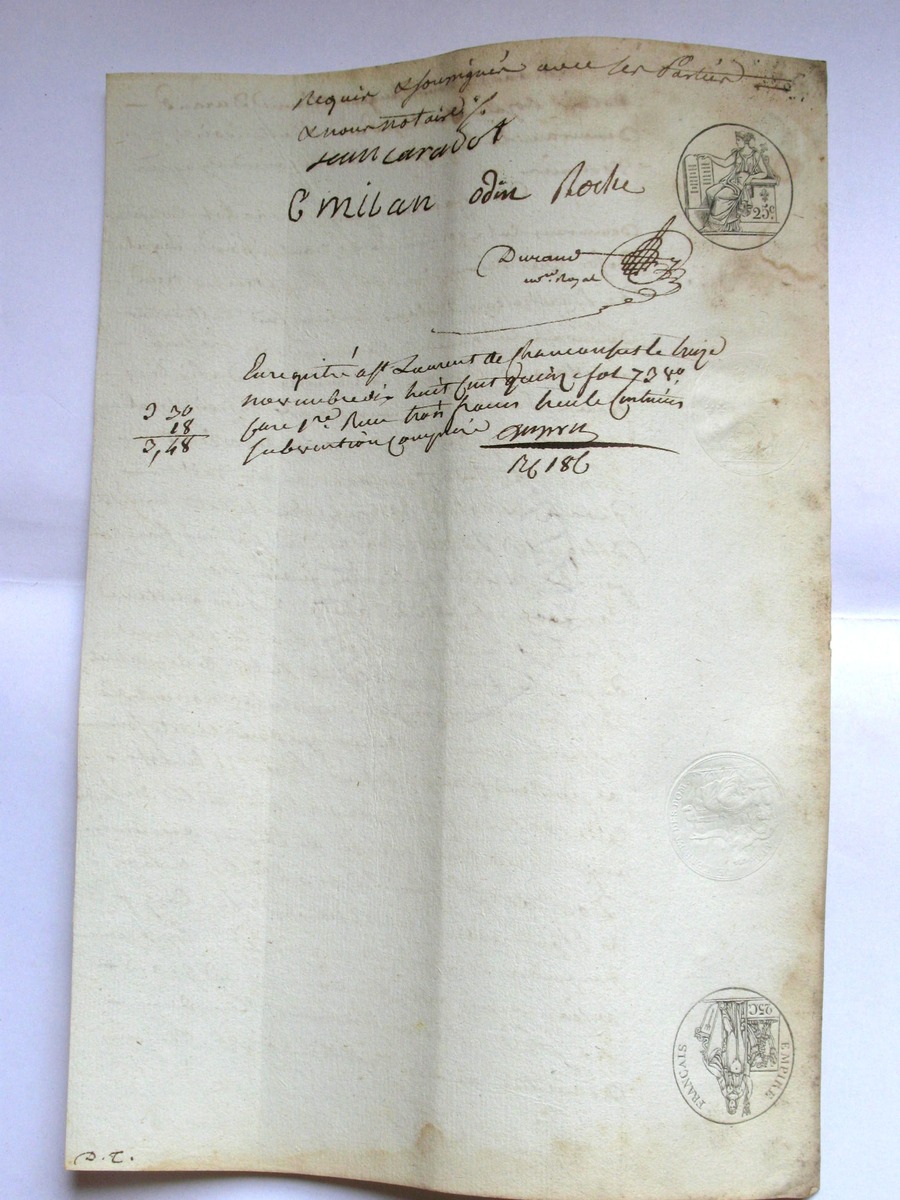 requis & soussignés avec les Parties
& nous notaire
Jean caradot
C milan odin Roche
25c.
Durand
nore. Royal
Enregistré à St Laurent de Chamousset le treize
novembre dix huit cent quinze fol 73 vo
Case 1re. Reçu trois francs trente Centimes
subvention comprise
3 30
18
3,48
R 6 186
EMPIRE FRANÇAIS
25C
D. T.